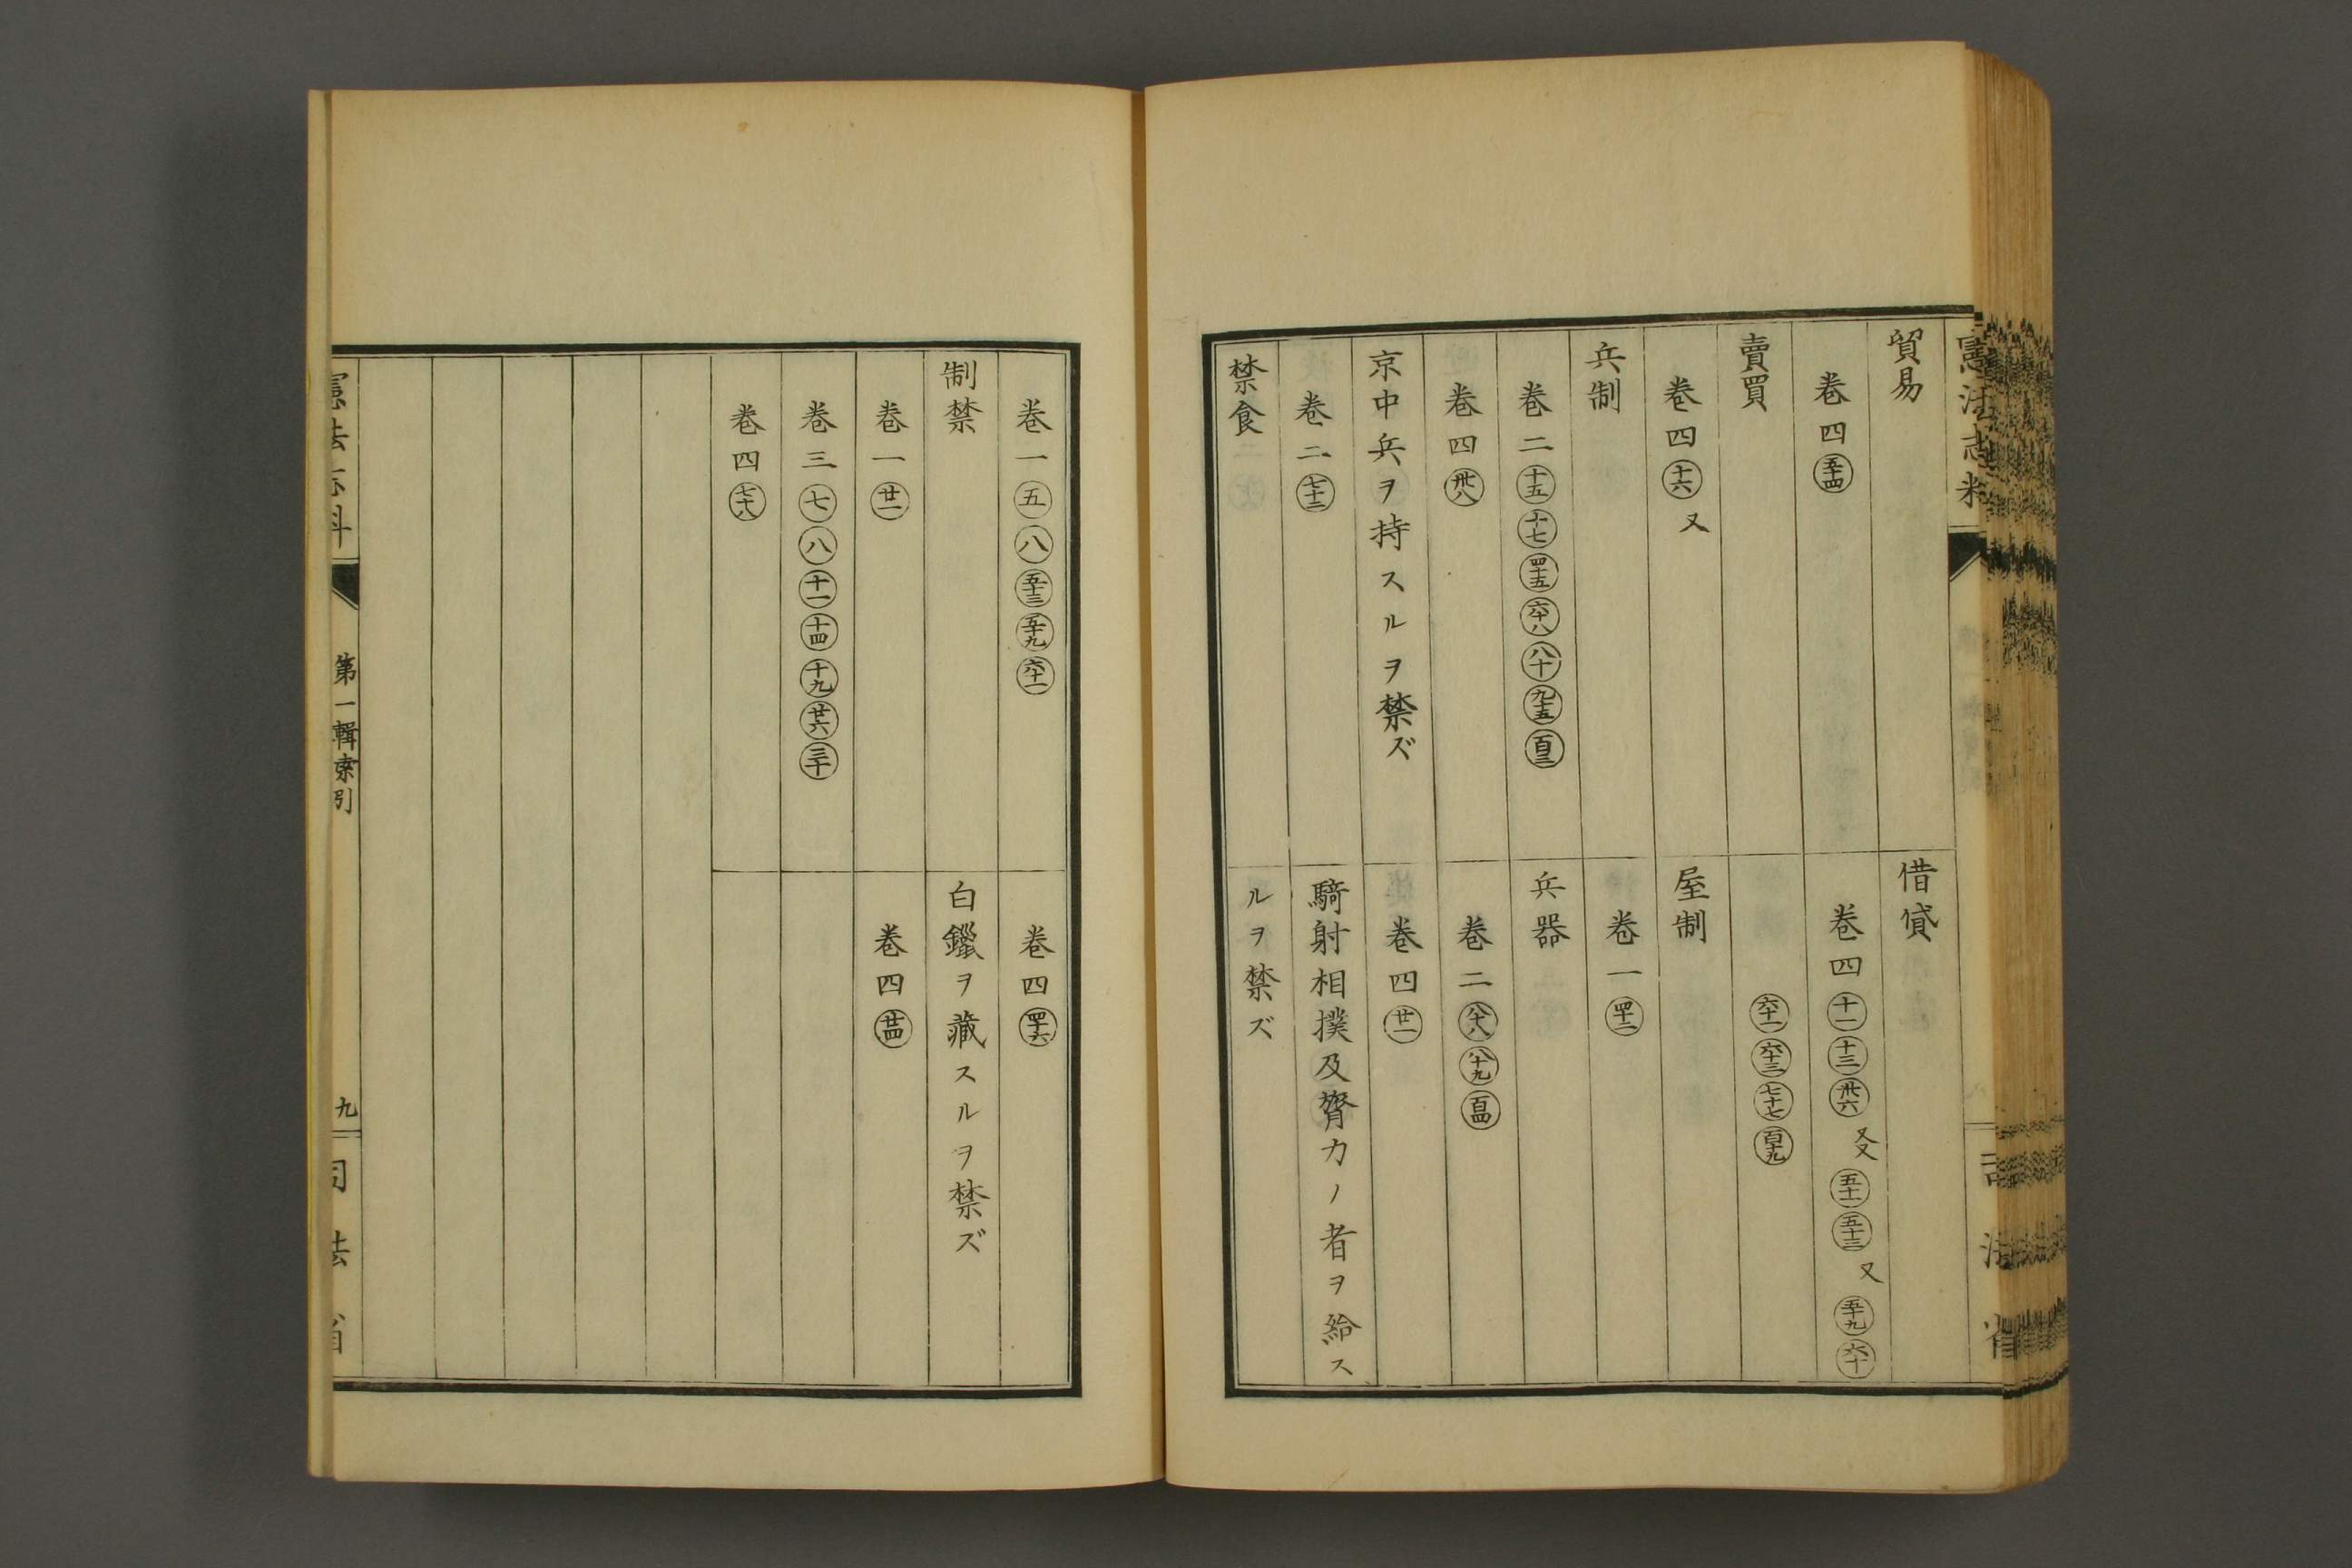 憲法志料
貿易
巻四 五十四
賣買
巻四 十六 又
兵制
巻二 十五 十七 四十五 六十八 八十 九十五 百三
巻四 卅八
京中兵ヲ持スルヲ禁ズ
巻二 七十三
禁食
借貸
巻四 十一 十三 卅六 又又 五十一 五十三 又 五十九 六十
六十一 六十三 七十七 百十九
屋制
巻一 四十二
兵器
巻二 八十八 八十九 百四
巻四 廿一
騎射相撲及膂力ノ者ヲ給ス
ルヲ禁ズ
司法省
巻一 五 八 五十三 五十九 六十一
制禁
巻一 廿一
巻三 七 八 十一 十四 十九 廿六 三十
巻四 七十八
巻四 四十六
白鑞ヲ藏スルヲ禁ズ
巻四 廿四
憲法志料
第一輯索引
九
司法省